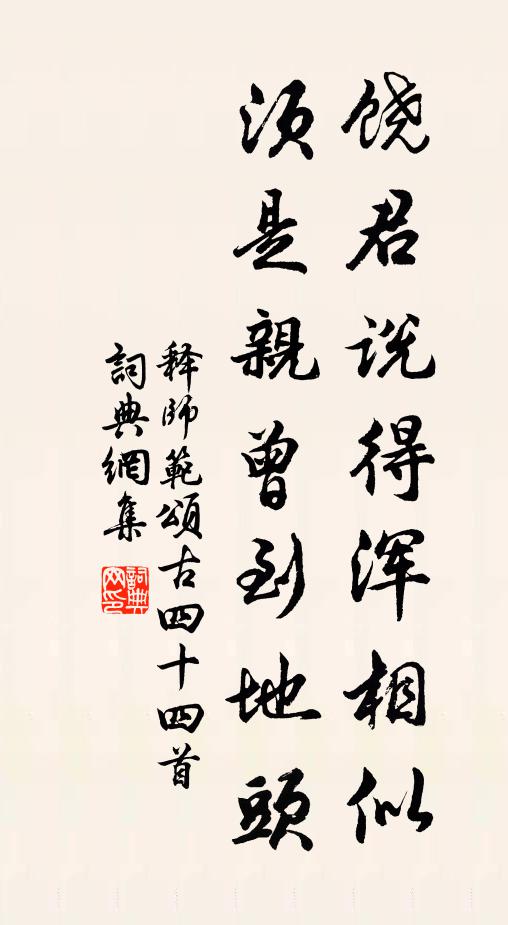 饶君说得浑相似
须是親曾到地頭
释師範頌古四十四首
詞典網集
詞典网印